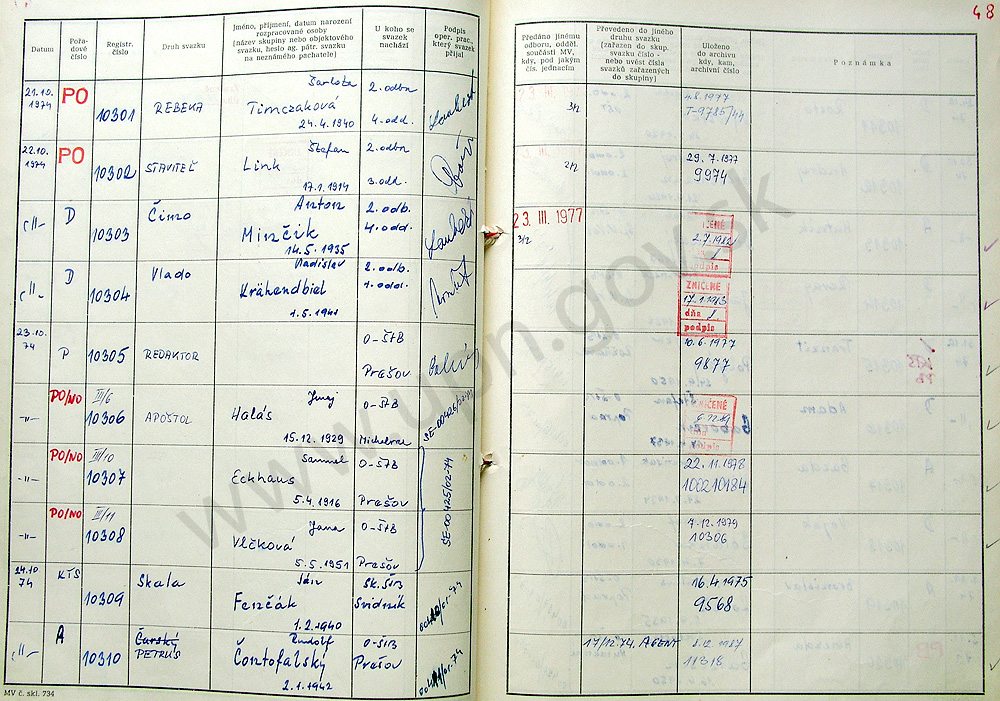 48
Datum
Pořadové číslo
Registr. číslo
Druh svazku
Jméno, příjmení, datum narození rozpracované osoby
(název skupiny nebo objektového svazku, heslo ag. pátr. svazku na neznámého pachatele)
U koho se svazek nachází
Podpis oper. prac., který svazek přijal
Předáno jinému odboru, odděl. součásti MV, kdy, pod jakým čís. jednacím
Převedeno do jiného druhu svazku
(zařazen do skup. svazku číslo - nebo uvést čísla svazků zařazených do skupiny)
Uloženo do archivu kdy, kam, archivní číslo
Poznámka
21.10. 1974 PO 10301 REBEKA Šarlota Timczaková 24.4.1940 2. odbor 4. odd.
3/2 4.8.1977 T-9785/44
22.10. 1974 PO 10302 STAVITEĽ Štefan Link 17.1.1914 2. odbor 3. odd.
2/2 29.7.1977 9974
-"- D 10303 Čimo Anton Minčík 14.5.1935 2. odb. 4. odd.
23. III. 1977 3/2 ZNIČENÉ podpis
-"- D 10304 Vlado Vladislav Krähendbiel 1.5.1941 2. odb. 1. odd.
ZNIČENÉ 17.1.1983 dňa podpis
23.10. 74 P 10305 REDAKTOR O-ŠTB Prešov
10.6.1977 9877
-"- PO/NO III/6 10306 APOŠTOL Juraj Halás 15.12.1929 O-ŠtB Michalovce
ZNIČENÉ
-"- PO/NO III/10 10307 Samuel Eckhaus 5.4.1916 O-ŠTB Prešov SE-00425/02-74
22.11.1978 100210184
-"- PO/NO III/11 10308 Jana Vlčková 5.5.1951 O-ŠtB Prešov
4.12.1979 10306
24.10. 74 KTS 10309 Skala Ján Fenčák 1.2.1940 SK. ŠtB Svidník
16.4.1975 9568
-"- A 10310 Čarský PETRUS Rudolf Čontofalský 2.1.1942 O-ŠtB Prešov
17/12 74. AGENT 8.12.1987 11318
MV č. skl. 734
www.upn.gov.sk